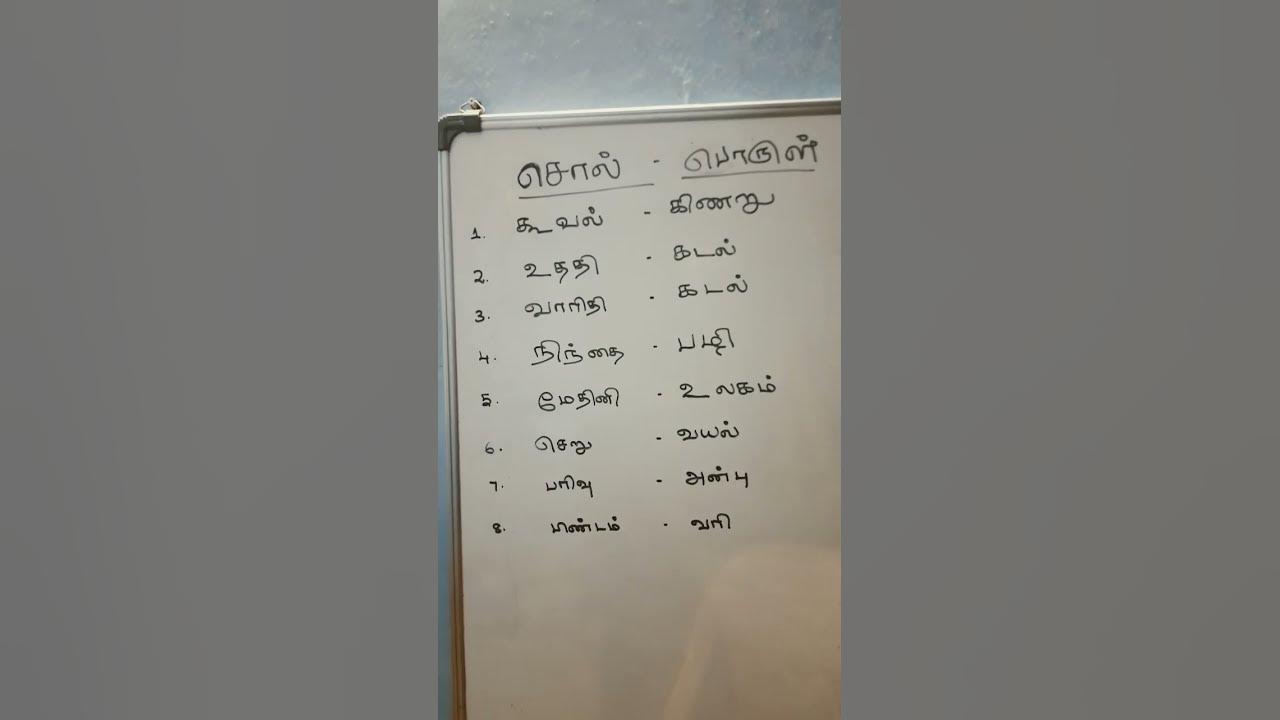 சொல் - பொருள்
1. கூவல் - கிணறு
2. உததி - கடல்
3. வாரிதி - கடல்
4. நிந்தை - பழி
5. மேதினி - உலகம்
6. செறு - வயல்
7. பரிவு - அன்பு
8. பண்டம் - வரி